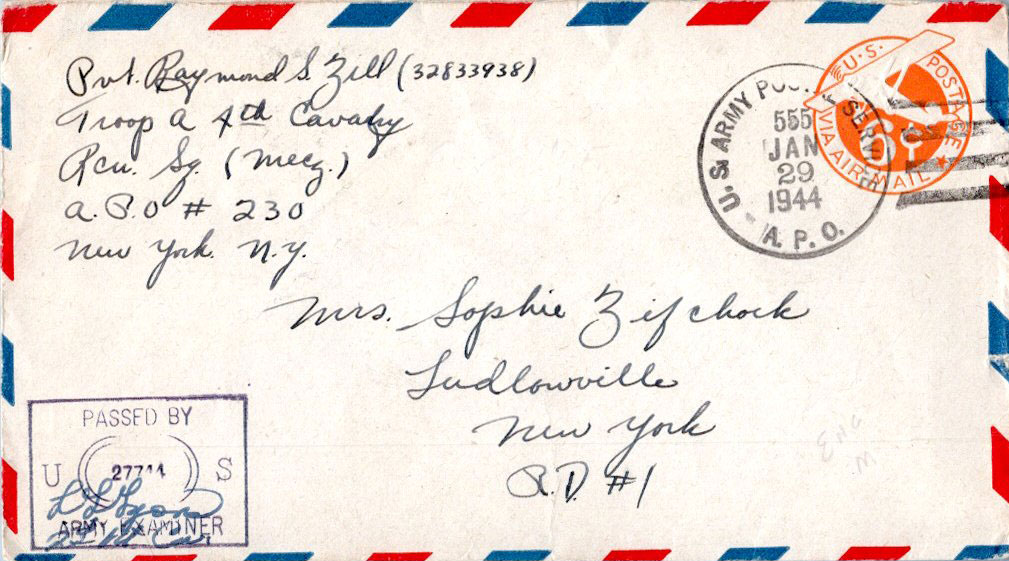 Pvt. Raymond S. Zill (32833938)
Troop A 4th Cavalry
Rcn. Sq. (Mecz.)
A.P.O # 230
New York. N.Y.
U.S. ARMY POSTAL SERVICE
555
JAN
29
1944
A. P. O.
U.S. POSTAGE
VIA AIR MAIL
6¢
Mrs. Sophie Zifchock
Ludlowville
New York
R.D. #1
PASSED BY
U 27744 S
ARMY EXAMINER
ENG
M